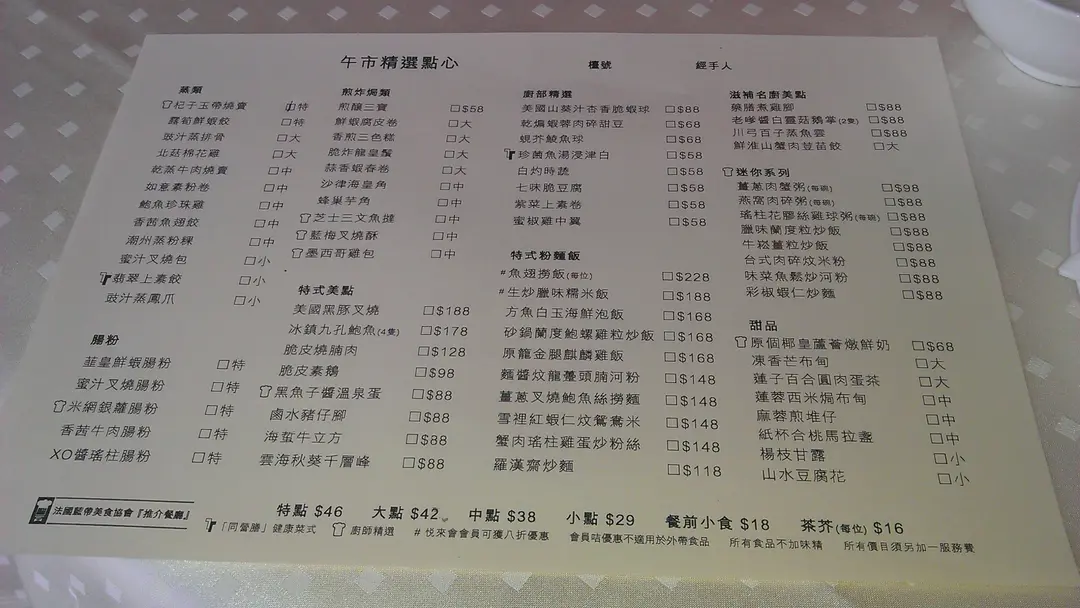 午市精選點心
檯號
經手人
蒸類
杞子玉帶燒賣 特
露筍鮮蝦餃 □特
豉汁蒸排骨 □大
北菇棉花雞 □大
乾蒸牛肉燒賣 □中
如意素粉卷 □中
鮑魚珍珠雞 □中
香茜魚翅餃 □中
潮州蒸粉粿 □中
蜜汁叉燒包 □小
翡翠上素餃 □小
豉汁蒸鳳爪 □小
腸粉
韮皇鮮蝦腸粉 □特
蜜汁叉燒腸粉 □特
米網銀蘿腸粉 □特
香茜牛肉腸粉 □特
XO醬瑤柱腸粉 □特
煎炸焗類
煎釀三寶 □$58
鮮蝦腐皮卷 □大
香煎三色糕 □大
脆炸龍皇鬚 □大
蒜香蝦春卷 □大
沙律海皇角 □中
蜂巢芋角 □中
芝士三文魚撻 □中
藍梅叉燒酥 □中
墨西哥雞包 □中
特式美點
美國黑豚叉燒 □$188
冰鎮九孔鮑魚(4隻) □$178
脆皮燒腩肉 □$128
脆皮素鵝 □$98
黑魚子醬溫泉蛋 □$88
鹵水豬仔腳 □$88
海蜇牛立方 □$88
雲海秋葵千層峰 □$88
廚部精選
美國山葵汁杏香脆蝦球 □$88
乾煸蝦蓉肉碎甜豆 □$68
蜆芥鯪魚球 □$68
珍菌魚湯浸津白 □$58
白灼時蔬 □$58
七味脆豆腐 □$58
紫菜上素卷 □$58
蜜椒雞中翼 □$58
特式粉麵飯
#魚翅撈飯(每位) □$228
#生炒臘味糯米飯 □$188
方魚白玉海鮮泡飯 □$168
砂鍋蘭度鮑螺雞粒炒飯 □$168
原籠金腿麒麟雞飯 □$168
麵醬炆龍躉頭腩河粉 □$148
薑蔥叉燒鮑魚絲撈麵 □$148
雪裡紅蝦仁炆鴛鴦米 □$148
蟹肉瑤柱雞蛋炒粉絲 □$148
羅漢齋炒麵 □$118
滋補名廚美點
藥膳煮雞腳 □$88
老爹醬白靈菇鵝掌(2隻) □$88
川弓百子蒸魚雲 □$88
鮮淮山蟹肉荳苗餃 □大
迷你系列
薑蔥肉蟹粥(每碗) □$98
燕窩肉碎粥(每碗) □$88
瑤柱花膠絲雞球粥(每碗) □$88
臘味蘭度粒炒飯 □$88
牛崧薑粒炒飯 □$88
台式肉碎炆米粉 □$88
味菜魚鬆炒河粉 □$88
彩椒蝦仁炒麵 □$88
甜品
原個椰皇蘆薈燉鮮奶 □$68
凍香芒布甸 □大
蓮子百合圓肉蛋茶 □大
蓮蓉西米焗布甸 □中
麻蓉煎堆仔 □中
紙杯合桃馬拉盞 □中
楊枝甘露 □小
山水豆腐花 □小
法國藍帶美食協會『推介餐廳』
特點 $46 大點 $42 中點 $38 小點 $29 餐前小食 $18 茶芥(每位) $16
「同營膳」健康菜式 廚師精選 # 悅來會會員可獲八折優惠 會員咭優惠不適用於外帶食品 所有食品不加味精 所有價目須另加一服務費